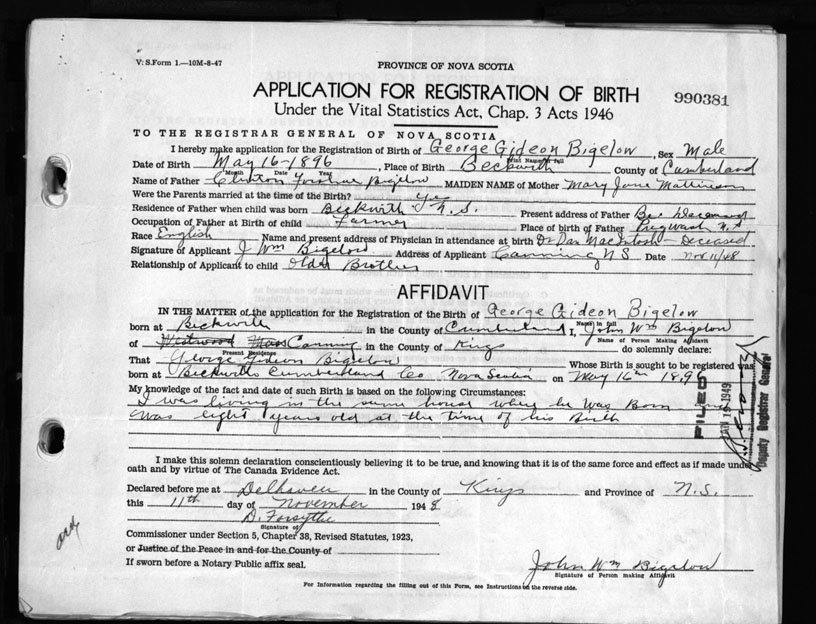 V. S. Form 1.—10M-8-47
PROVINCE OF NOVA SCOTIA
APPLICATION FOR REGISTRATION OF BIRTH
990381
Under the Vital Statistics Act, Chap. 3 Acts 1946
TO THE REGISTRAR GENERAL OF NOVA SCOTIA
I hereby make application for the Registration of Birth of George Gideon Bigelow, Sex Male
Print Name in full
Date of Birth May 16-1896, Place of Birth Beckwith County of Cumberland
Month Date Year
Name of Father Clinton Bigelow MAIDEN NAME of Mother Mary Jane Mattinson
Were the Parents married at the time of the Birth? Yes
Residence of Father when child was born Beckwith N.S. Present address of Father Deceased
Occupation of Father at Birth of child Farmer Place of birth of Father Pugwash N.S.
Race English Name and present address of Physician in attendance at birth Dr Dan MacIntosh - Deceased
Signature of Applicant J Wm Bigelow Address of Applicant Canning N S Date Nov 11/48
Relationship of Applicant to child Older Brother
AFFIDAVIT
IN THE MATTER of the application for the Registration of the Birth of George Gideon Bigelow
Name in full
born at Beckwith in the County of Cumberland I, John Wm Bigelow
Name of Person Making Affidavit
of Westwood Mass Canning in the County of Kings do solemnly declare:
Present Residence
That George Gideon Bigelow Whose Birth is sought to be registered was
born at Beckwith Cumberland Co Nova Scotia on May 16th 1896
My knowledge of the fact and date of such Birth is based on the following Circumstances:
I was living in the same house where he was Born and
was eight years old at the time of his Birth
FILED
JAN 19 1949
Deputy Registrar General
I make this solemn declaration conscientiously believing it to be true, and knowing that it is of the same force and effect as if made under
oath and by virtue of The Canada Evidence Act.
Declared before me at Delhaven in the County of Kings and Province of N.S.
this 11th day of November 1948
D. Forsythe
Signature of
Commissioner under Section 5, Chapter 38, Revised Statutes, 1923,
or Justice of the Peace in and for the County of
If sworn before a Notary Public affix seal.
John Wm Bigelow
Signature of Person making Affidavit
For Information regarding the filling out of this Form, see Instructions on the reverse side.